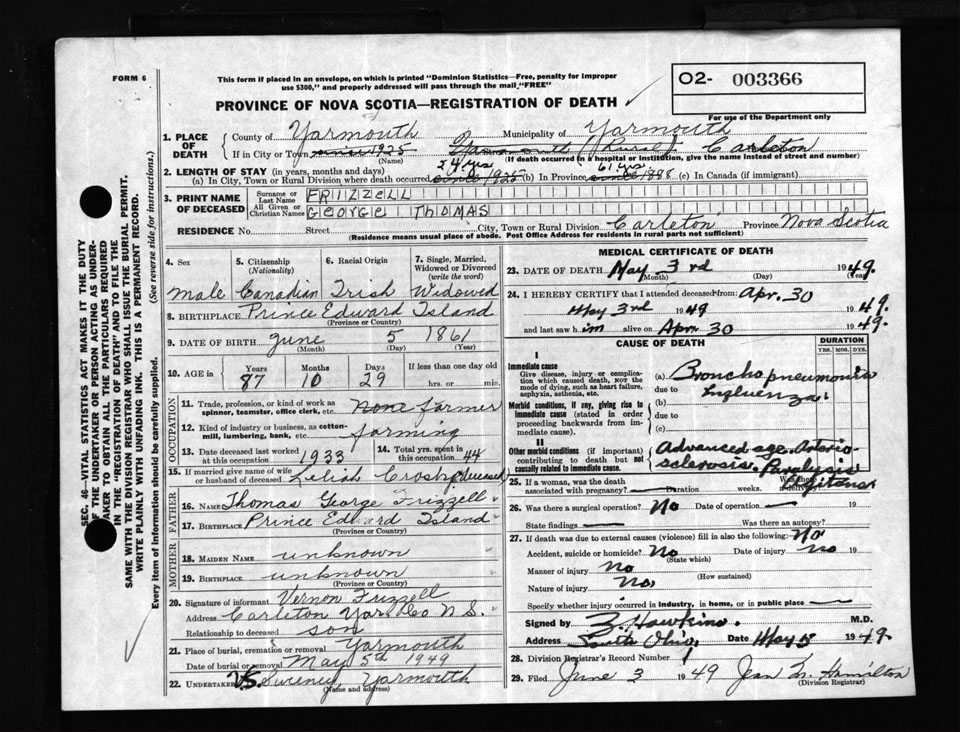 FORM 6
This form if placed in an envelope, on which is printed "Dominion Statistics—Free, penalty for improper
use $300," and properly addressed will pass through the mail "FREE"
O2- 003366
For use of the Department only
PROVINCE OF NOVA SCOTIA—REGISTRATION OF DEATH
1. PLACE OF DEATH
County of Yarmouth Municipality of Yarmouth
If in City or Town since 1925 (Name) Yarmouth (Rural) Carleton
(If death occurred in a hospital or institution, give the name instead of street and number)
2. LENGTH OF STAY (in years, months and days)
(a) In City, Town or Rural Division where death occurred 24 yrs since 1925 (b) In Province 61 yrs. since 1888 (c) In Canada (if immigrant)
3. PRINT NAME OF DECEASED
Surname or Last Name FRIIZZELL
All Given or Christian Names GEORGE THOMAS
RESIDENCE No. Street City, Town or Rural Division Carleton Province Nova Scotia
(Residence means usual place of abode. Post Office Address for residents in rural parts not sufficient)
4. Sex 5. Citizenship (Nationality) 6. Racial Origin 7. Single, Married, Widowed or Divorced (write the word)
Male Canadian Irish Widowed
8. BIRTHPLACE Prince Edward Island
(Province or Country)
9. DATE OF BIRTH June 5 1861
(Month) (Day) (Year)
10. AGE in Years Months Days If less than one day old
87 10 29 hrs. or min.
OCCUPATION
11. Trade, profession, or kind of work as spinner, teamster, office clerk, etc. None farmer
12. Kind of industry or business, as cotton-mill, lumbering, bank, etc. farming
13. Date deceased last worked at this occupation 1933 14. Total yrs. spent in this occupation 44
15. If married give name of wife or husband of deceased Leliah Crosby (deceased)
FATHER
16. NAME Thomas George Frizzell
17. BIRTHPLACE Prince Edward Island
MOTHER
18. MAIDEN NAME unknown
19. BIRTHPLACE unknown
(Province or Country)
20. Signature of informant Vernon Frizzell
Address Carleton Yar Co N S.
Relationship to deceased son
21. Place of burial, cremation or removal Yarmouth
Date of burial or removal May 5th 1949
22. Undertaker VS Sweeney Yarmouth
(Name and address)
MEDICAL CERTIFICATE OF DEATH
23. DATE OF DEATH May 3rd 1949.
(Month) (Day) (Year)
24. I HEREBY CERTIFY that I attended deceased from: Apr. 30 1949.
May 3rd 1949
and last saw him alive on Apr 30 1949.
CAUSE OF DEATH DURATION
YRS. MOS. DYS.
I
Immediate cause
Give disease, injury or complication which caused death, not the mode of dying, such as heart failure, asphyxia, asthenia, etc.
(a) Bronchopneumonia
due to Influenza.
Morbid conditions, if any, giving rise to immediate cause (stated in order proceeding backwards from immediate cause).
(b)
due to
(c)
II
Other morbid conditions (if important) contributing to death but not causally related to immediate cause.
Advanced age. Arterio-
sclerosis. Paralysis
Agitans
25. If a woman, was the death associated with pregnancy? Duration weeks. Was there a delivery?
26. Was there a surgical operation? No Date of operation 19
State findings Was there an autopsy?
27. If death was due to external causes (violence) fill in also the following: No
Accident, suicide or homicide? No Date of injury no 19
(State which)
Manner of injury No
(How sustained)
Nature of injury No.
Specify whether injury occurred in industry, in home, or in public place
Signed by Z. Hawkins. M.D.
Address Ohio. Date May 13 1949.
28. Division Registrar's Record Number 1
29. Filed June 3 1949 Jean M. Hamilton
(Division Registrar)
SEC. 46—VITAL STATISTICS ACT MAKES IT THE DUTY
OF THE UNDERTAKER OR PERSON ACTING AS UNDER-
TAKER TO OBTAIN ALL THE PARTICULARS REQUIRED
IN THE "REGISTRATION OF DEATH" AND TO FILE THE
SAME WITH THE DIVISION REGISTRAR WHO SHALL ISSUE THE BURIAL PERMIT.
WRITE PLAINLY WITH UNFADING INK. THIS IS A PERMANENT RECORD.
Every item of information should be carefully supplied. (See reverse side for instructions.)